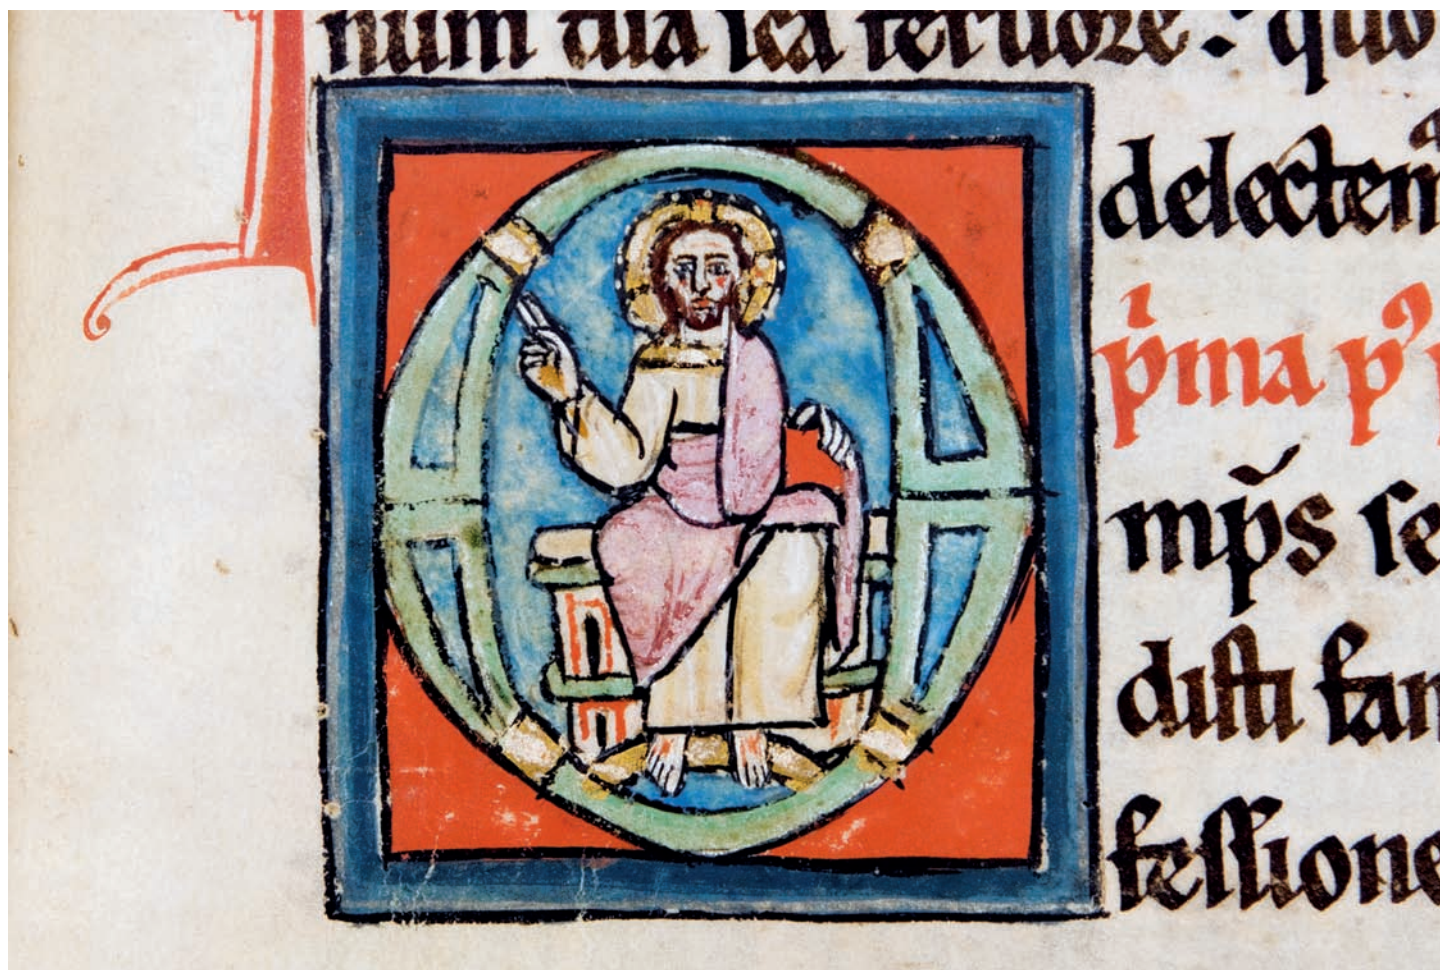 num tua sca feruore : quo
delectemꝰ
pͥma pꝰ
O
mp̄s ſe
diſti fam
feſſione